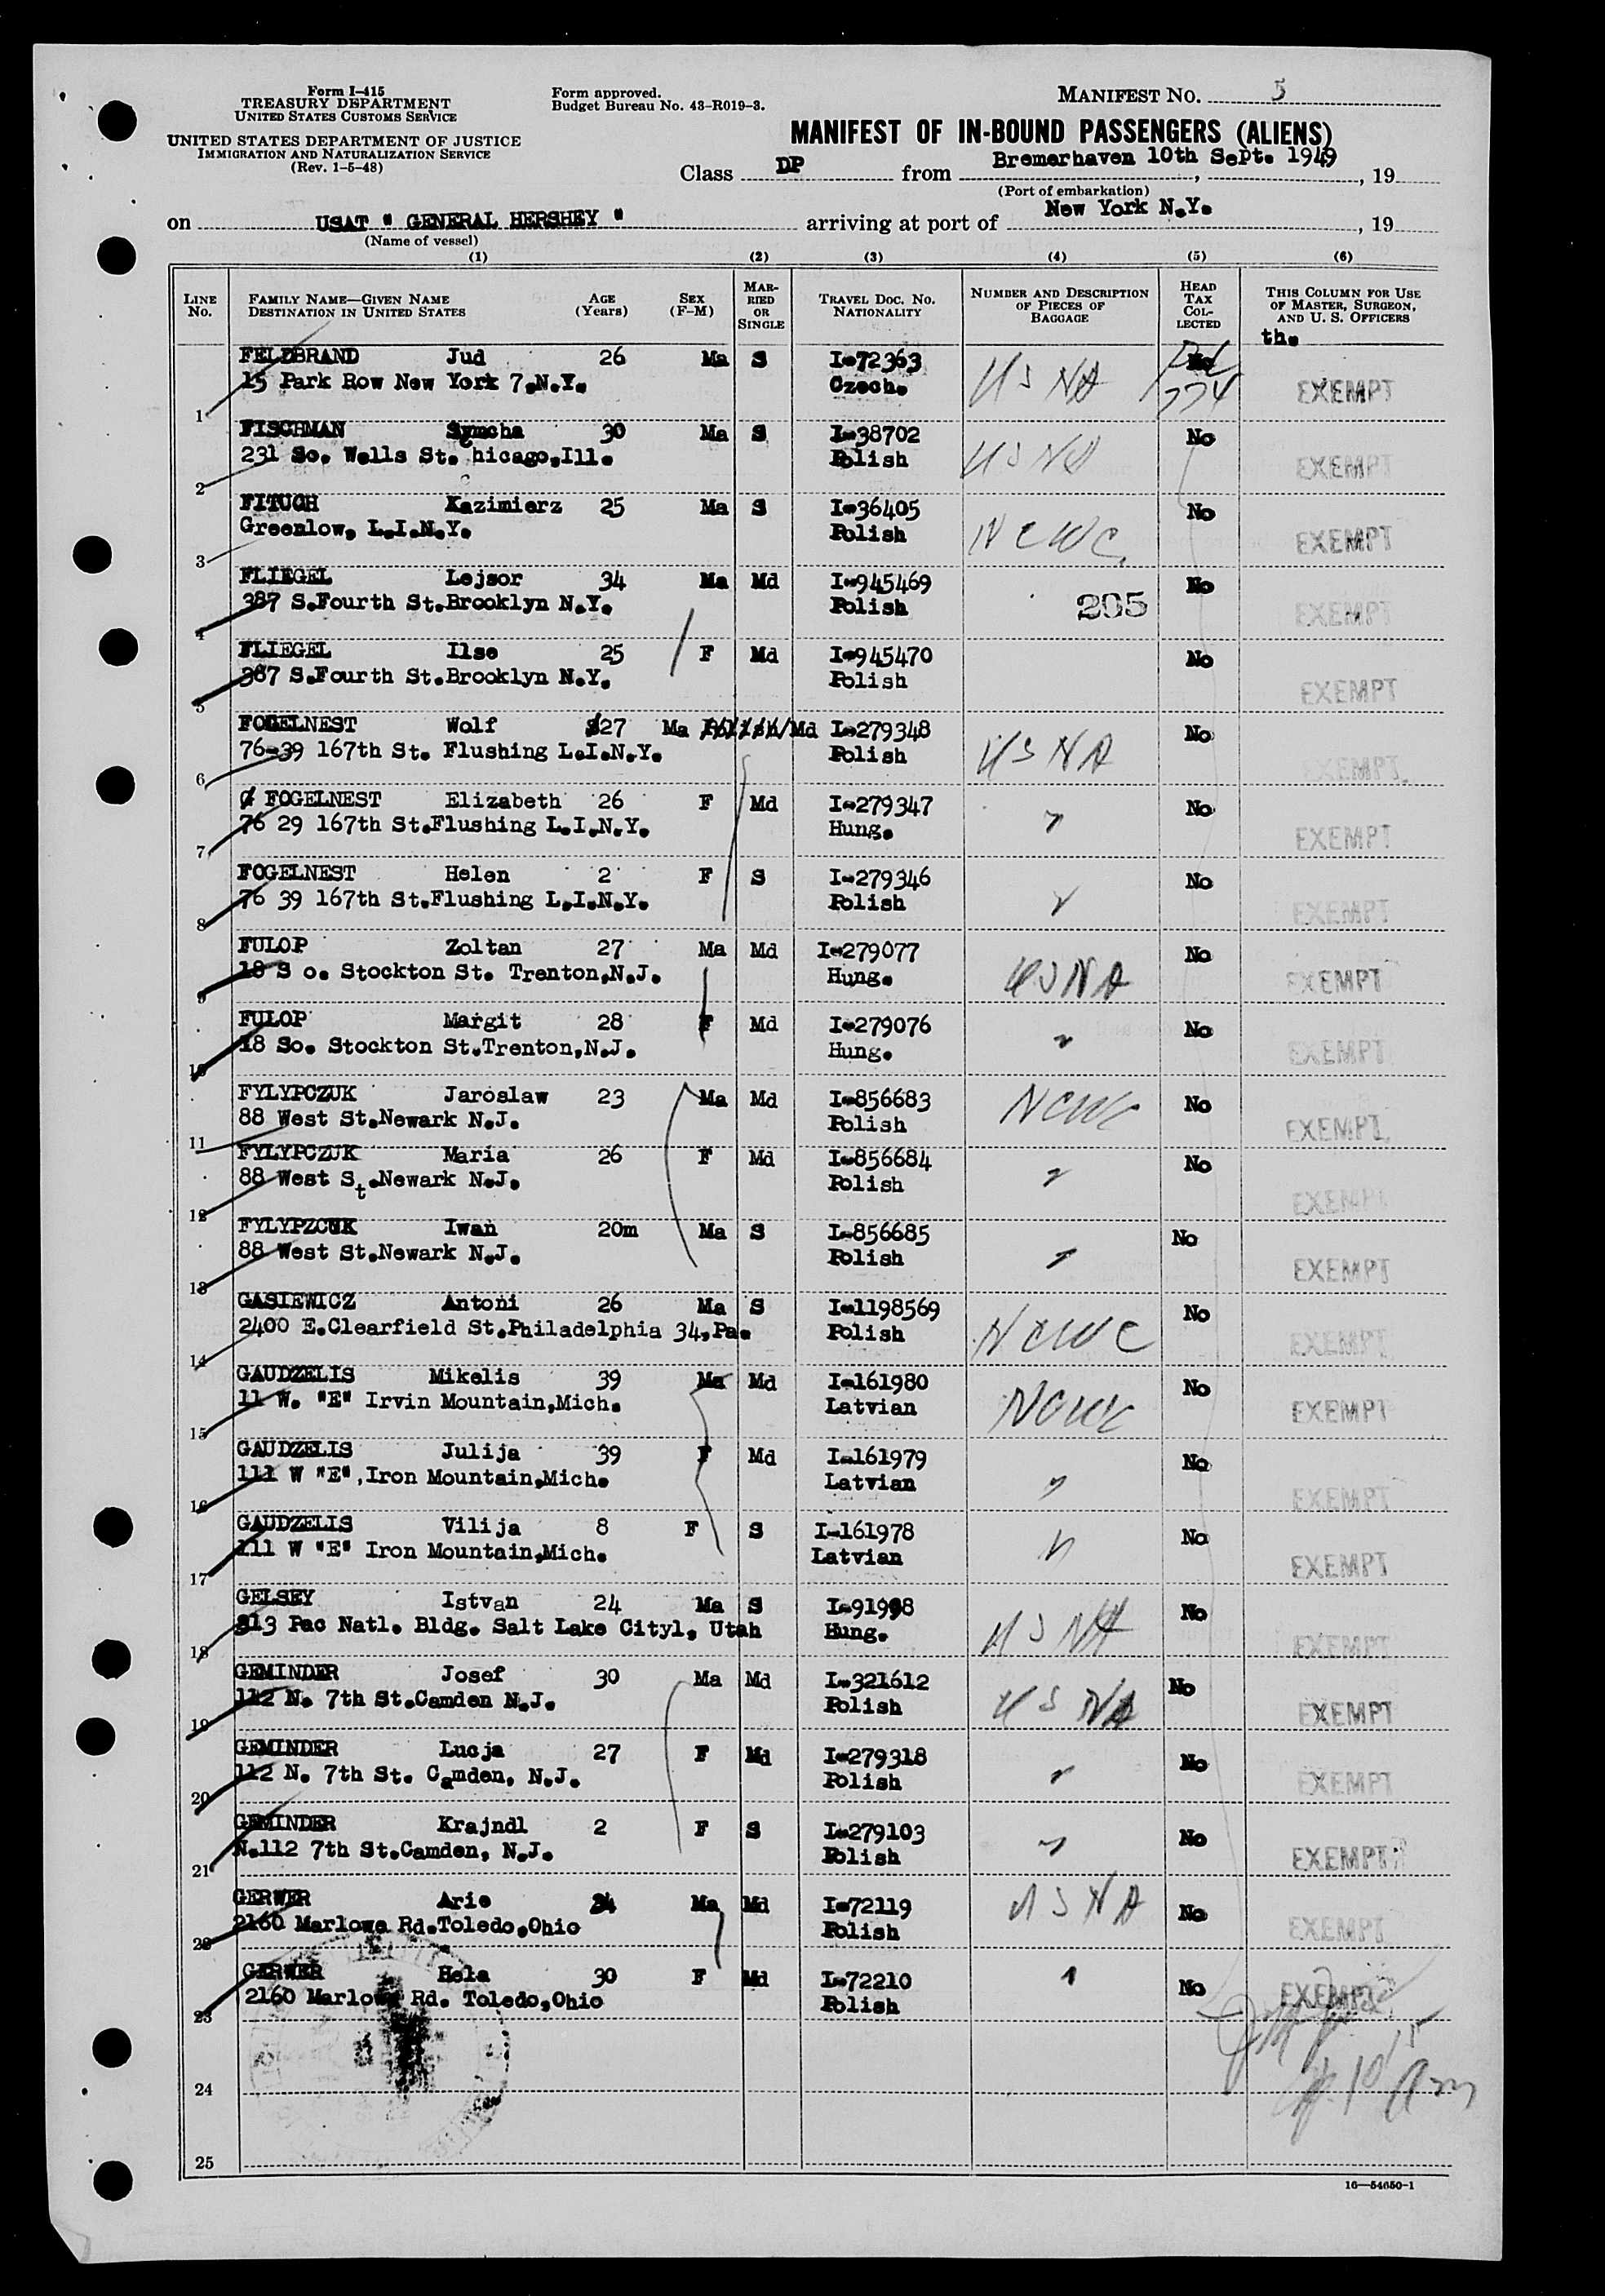 Form I-415
TREASURY DEPARTMENT
UNITED STATES CUSTOMS SERVICE
UNITED STATES DEPARTMENT OF JUSTICE
IMMIGRATION AND NATURALIZATION SERVICE
(Rev. 1-5-48)
Form approved.
Budget Bureau No. 43-R019-3.
MANIFEST NO. 5
MANIFEST OF IN-BOUND PASSENGERS (ALIENS)
Class DP from Bremerhaven 10th Sept. 1949, 19
(Port of embarkation)
on USAT " GENERAL HERSHEY " arriving at port of New York N.Y. , 19
(Name of vessel)
(1) (2) (3) (4) (5) (6)
LINE No. FAMILY NAME—GIVEN NAME DESTINATION IN UNITED STATES AGE (Years) SEX (F-M) MARRIED OR SINGLE TRAVEL DOC. NO. NATIONALITY NUMBER AND DESCRIPTION OF PIECES OF BAGGAGE HEAD TAX COLLECTED THIS COLUMN FOR USE OF MASTER, SURGEON, AND U. S. OFFICERS
the
FELDBRAND Jud 26 Ma S I-72363
1 15 Park Row New York 7,N.Y. Czech. USNA EXEMPT
FISCHMAN Symcha 30 Ma S I-38702 No
2 231 So. Wells St. hicago,Ill. Polish USNA EXEMPT
FITUCH Kazimierz 25 Ma S I-36405 No
3 Greenlow, L.I.N.Y. Polish NCWC EXEMPT
FLIEGEL Lejsor 34 Ma Md I-945469 No
4 387 S.Fourth St.Brooklyn N.Y. Polish 205 EXEMPT
FLIEGEL Ilse 25 F Md I-945470 No
5 387 S.Fourth St.Brooklyn N.Y. Polish EXEMPT
FOGELNEST Wolf 27 Ma Md I-279348 No
6 76-39 167th St. Flushing L.I.N.Y. Polish USNA EXEMPT
FOGELNEST Elizabeth 26 F Md I-279347 No
7 76 29 167th St.Flushing L.I.N.Y. Hung. " EXEMPT
FOGELNEST Helen 2 F S I-279346 No
8 76 39 167th St.Flushing L.I.N.Y. Polish " EXEMPT
FULOP Zoltan 27 Ma Md I-279077 No
9 18 S o. Stockton St. Trenton,N.J. Hung. USNA EXEMPT
FULOP Margit 28 F Md I-279076 No
10 18 So. Stockton St.Trenton,N.J. Hung. " EXEMPT
FYLYPCZUK Jaroslaw 23 Ma Md I-856683 No
11 88 West St.Newark N.J. Polish NCWC EXEMPT
FYLYPCZUK Maria 26 F Md I-856684 No
12 88 West St.Newark N.J. Polish " EXEMPT
FYLYPZCUK Iwan 20m Ma S I-856685 No
13 88 West St.Newark N.J. Polish " EXEMPT
GASIEWICZ Antoni 26 Ma S I-1198569 No
14 2400 E.Clearfield St.Philadelphia 34,Pa. Polish NCWC EXEMPT
GAUDZELIS Mikelis 39 Ma Md I-161980 No
15 11 W. "E" Irvin Mountain,Mich. Latvian NCWC EXEMPT
GAUDZELIS Julija 39 F Md I-161979 No
16 111 W "E",Iron Mountain,Mich. Latvian " EXEMPT
GAUDZELIS Vilija 8 F S I-161978 No
17 111 W "E" Iron Mountain,Mich. Latvian " EXEMPT
GELSEY Istvan 24 Ma S I-91998 No
18 313 Pac Natl. Bldg. Salt Lake Cityl, Utah Hung. USNA EXEMPT
GEMINDER Josef 30 Ma Md I-321612 No
19 112 N. 7th St.Camden N.J. Polish USNA EXEMPT
GEMINDER Lucja 27 F Md I-279318 No
20 112 N. 7th St. Camden, N.J. Polish " EXEMPT
GEMINDER Krajndl 2 F S I-279103 No
21 N.112 7th St.Camden, N.J. Polish " EXEMPT
GERWER Arie 34 Ma Md I-72119 USNA No
22 2160 Marlowe Rd.Toledo,Ohio Polish EXEMPT
GERWER Hela 30 F Md I-72210 " No
23 2160 Marlowe Rd. Toledo,Ohio Polish EXEMPT
24
25
16—54650-1